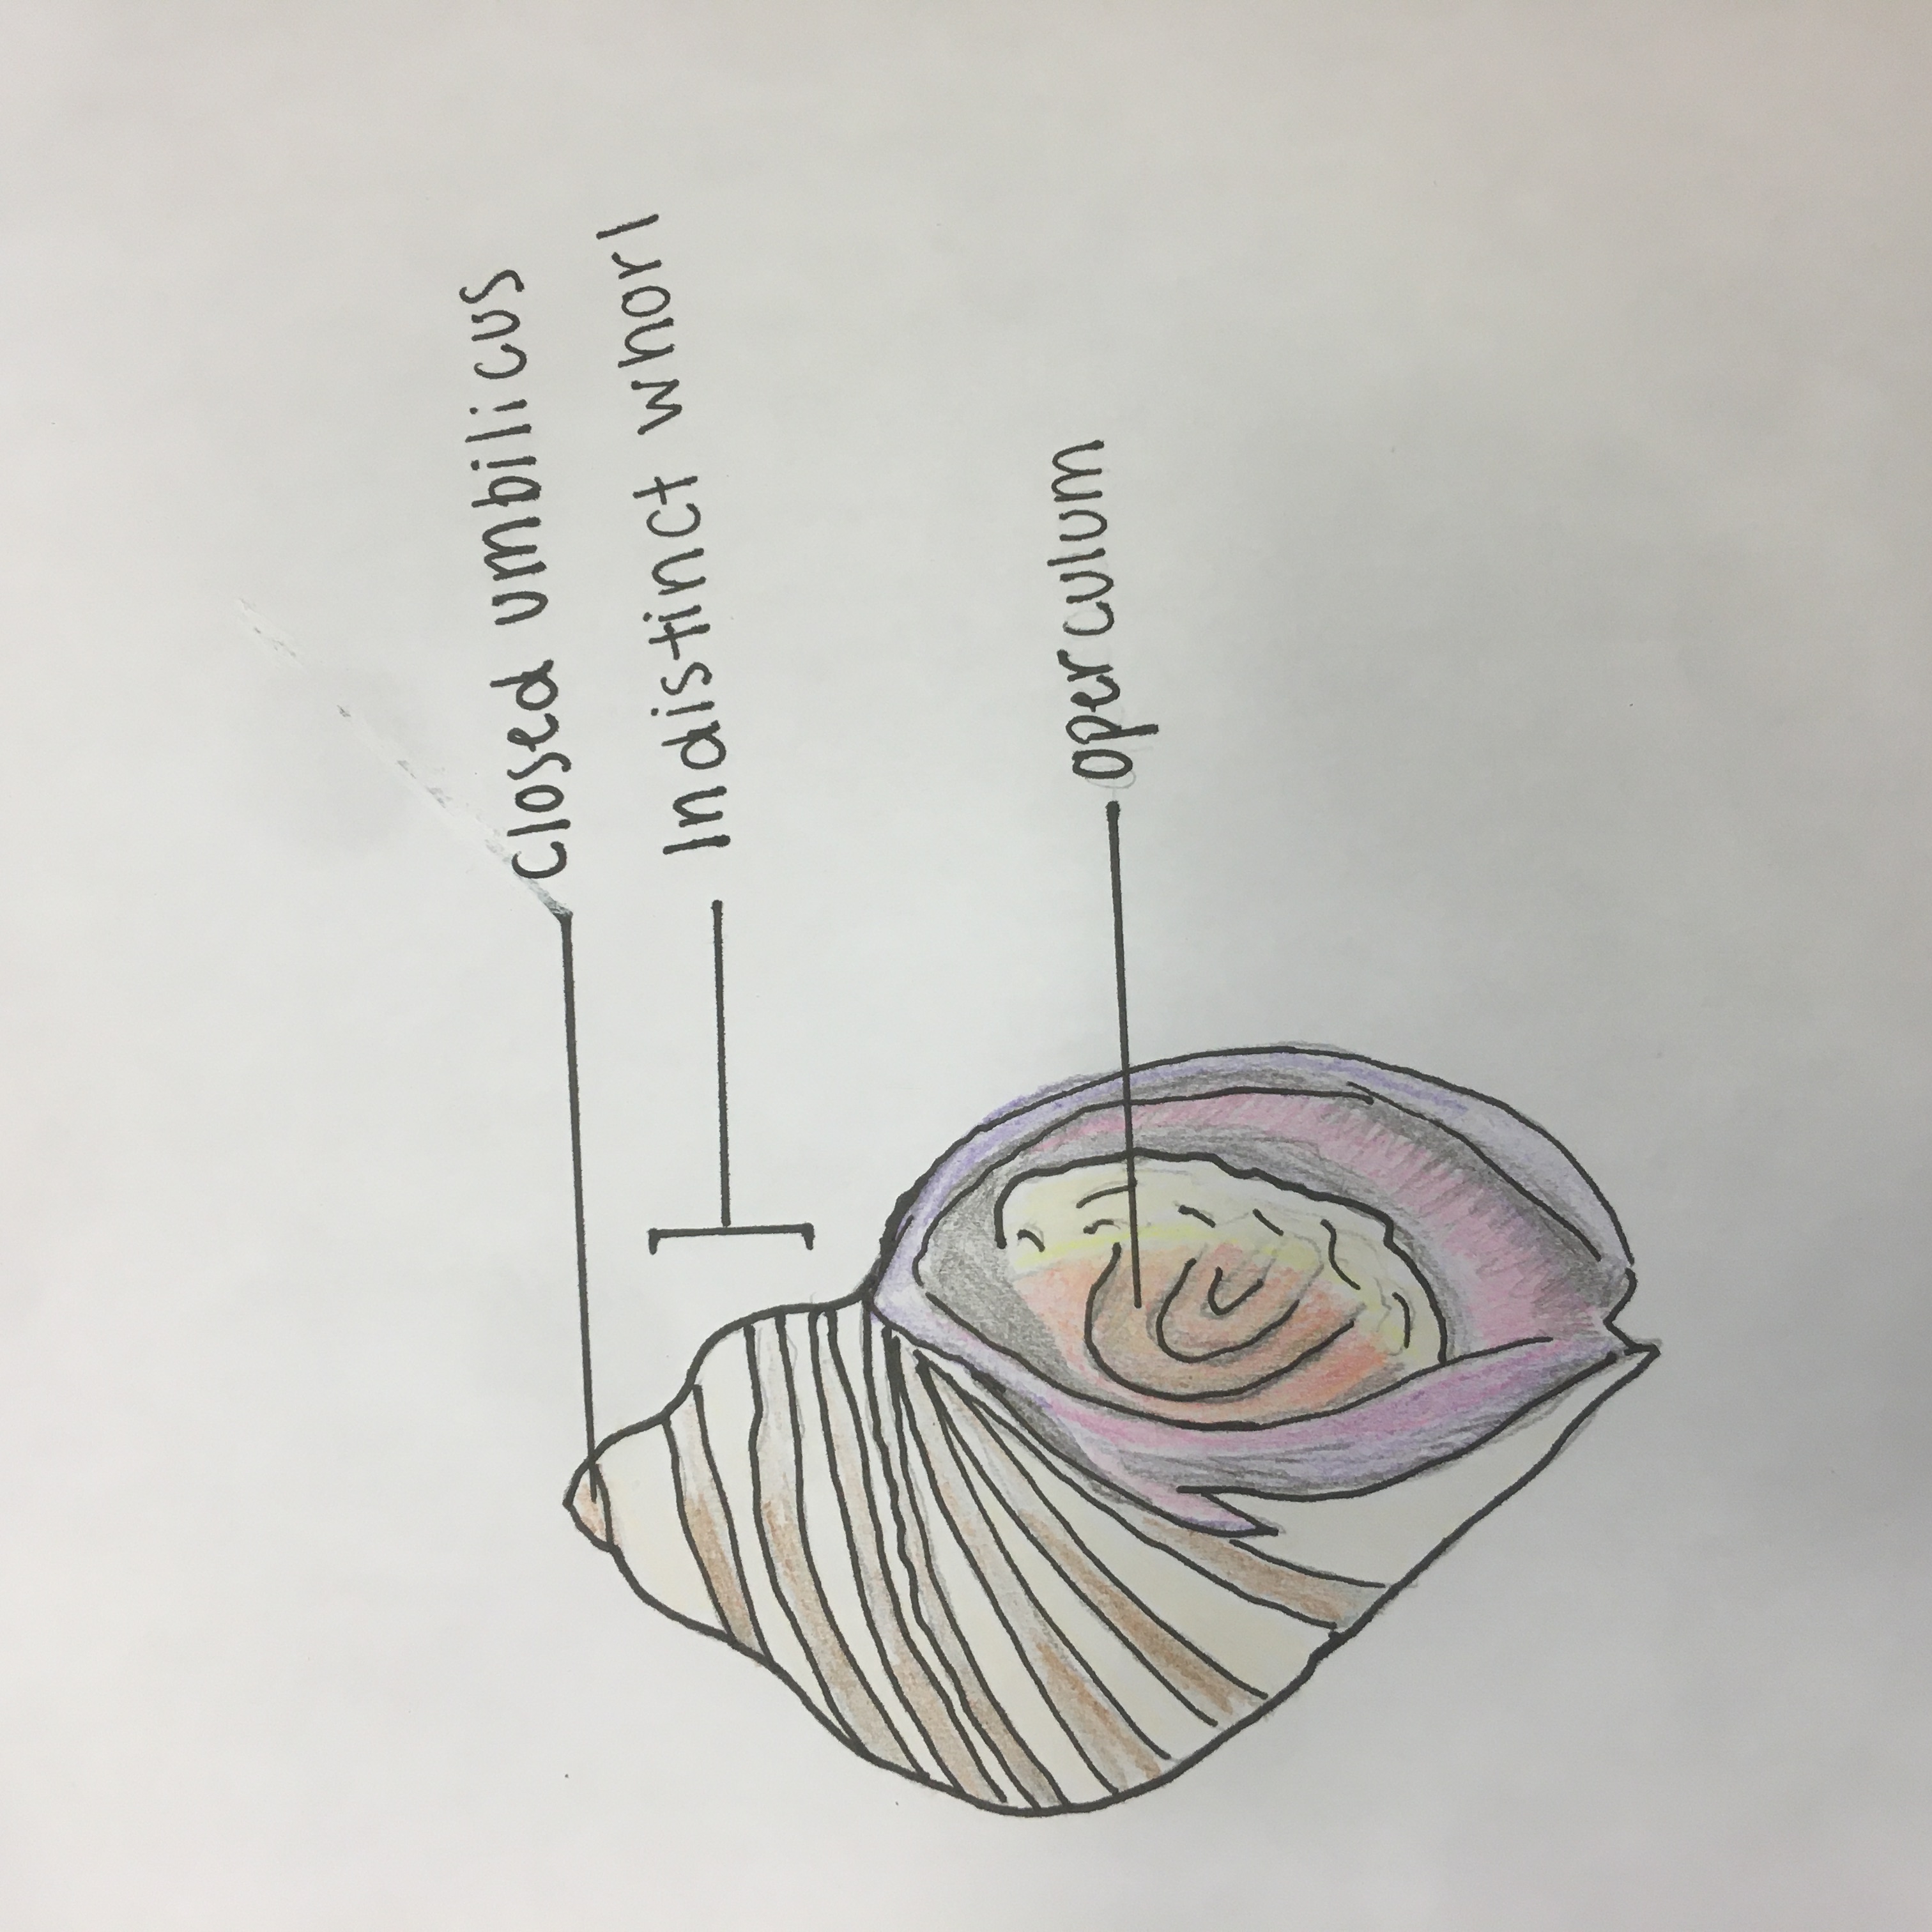 Closed umbilicus
Indistinct whorl
operculum